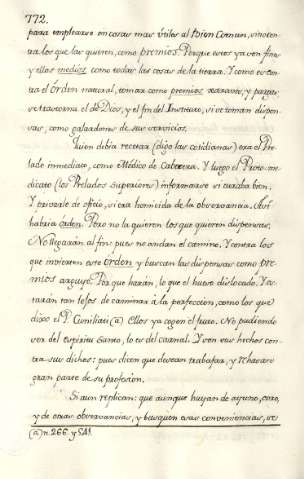 772.
para emplearse en cosas mas útiles al Bien Comun, sino con-
tra los que las quieren, como premios. Porque estos ya son fines
y ellos medios como todas las cosas de la tierra. Y como es con-
tra el órden natural, tomar como premios
se trastorna el de Dios, y el fin del Instituto, si se toman dispen-
sas, como galardones de sus servicios.
Quien debia recetar (digo las cotidianas) era el Pre-
lado inmediato, como Médico de Cabecera. Y luego el Proto-me-
dicato (los Prelados superiores) informarse si curaba bien.
Y privarle de oficio, si era homicida de la observancia. Así
habria órden. Pero no la quieren los que quieren dispensas.
No llegarán al fin, pues no andan el camino. Y contra los
que invierten este órden y buscan las dispensas como pre-
mios arguyo. Por que harán, lo que el hueso dislocado. Y es-
tarán tan lejos de caminar á la perfeccion, como los que
dixo el P. (a) Ellos ya cogen el fruto. No pudiendo
ser del Espiritu Santo, lo es del carnal. Y son sus hechos con-
tra sus dichos: pues dicen que desean trabajar, y rehusan
gran parte de su profesion.
Si aun replican: que aunque huyan de ayuno, coro,
y de otras observancias, y busquen otras conveniencias, es
(a) n. 266. y 581.